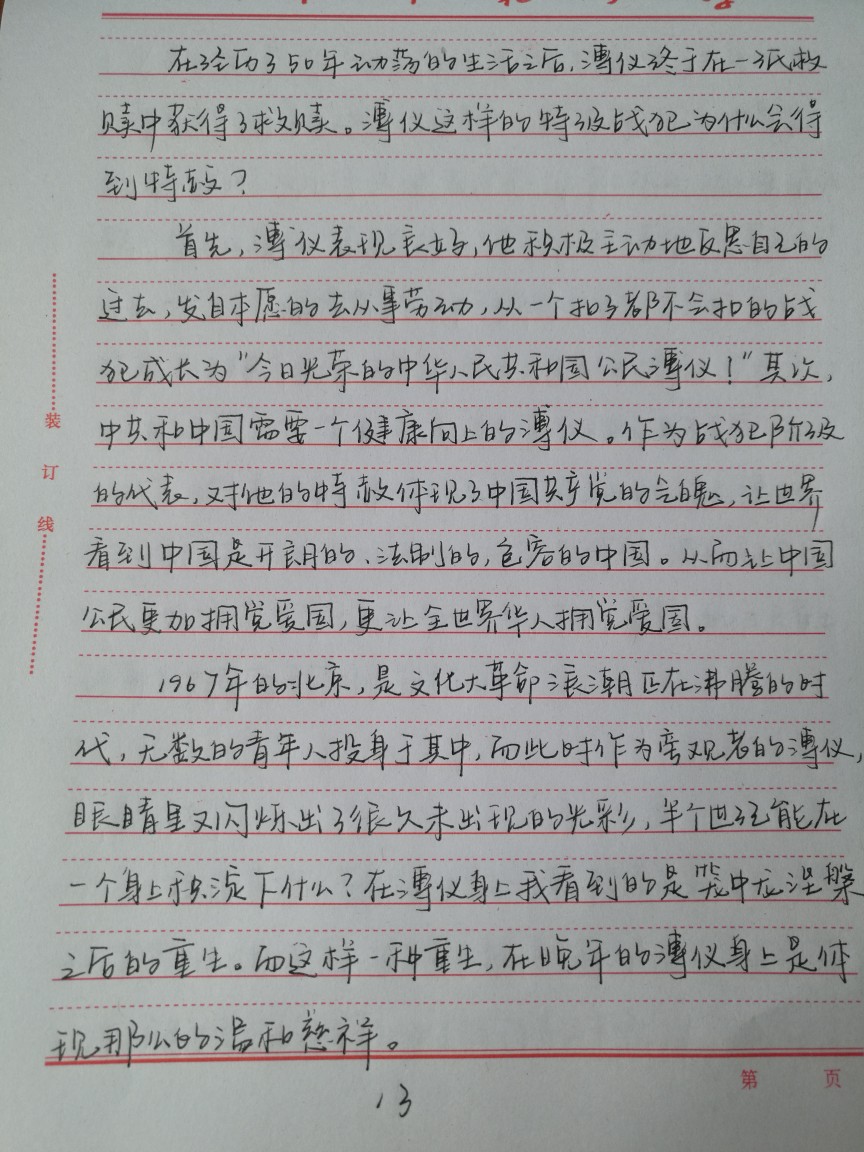 在经历了50年动荡的生活之后,溥仪终于在一纸救
赎中获得了救赎。溥仪这样的特级战犯为什么会得
到特赦?
首先,溥仪表现良好,他积极主动地反思自己的
过去,发自本愿的去从事劳动,从一个扣子都不会扣的战
犯成长为“今日光荣的中华人民共和国公民溥仪!”其次,
中共和中国需要一个健康向上的溥仪。作为战犯阶级
的代表,对他的特赦体现了中国共产党的气魄,让世界
看到中国是开朗的、法制的,包容的中国。从而让中国
公民更加拥党爱国,更让全世界华人拥党爱国。
1967年的北京,是文化大革命浪潮正在沸腾的时
代,无数的青年人投身于其中,而此时作为旁观者的溥仪,
眼睛里又闪烁出了很久未出现的光彩,半个世纪能在
一个身上积淀下什么?在溥仪身上我看到的是笼中龙涅槃
之后的重生。而这样一种重生,在晚年的溥仪身上是体
现那么的温和慈祥。
装
订
线
第 页
13